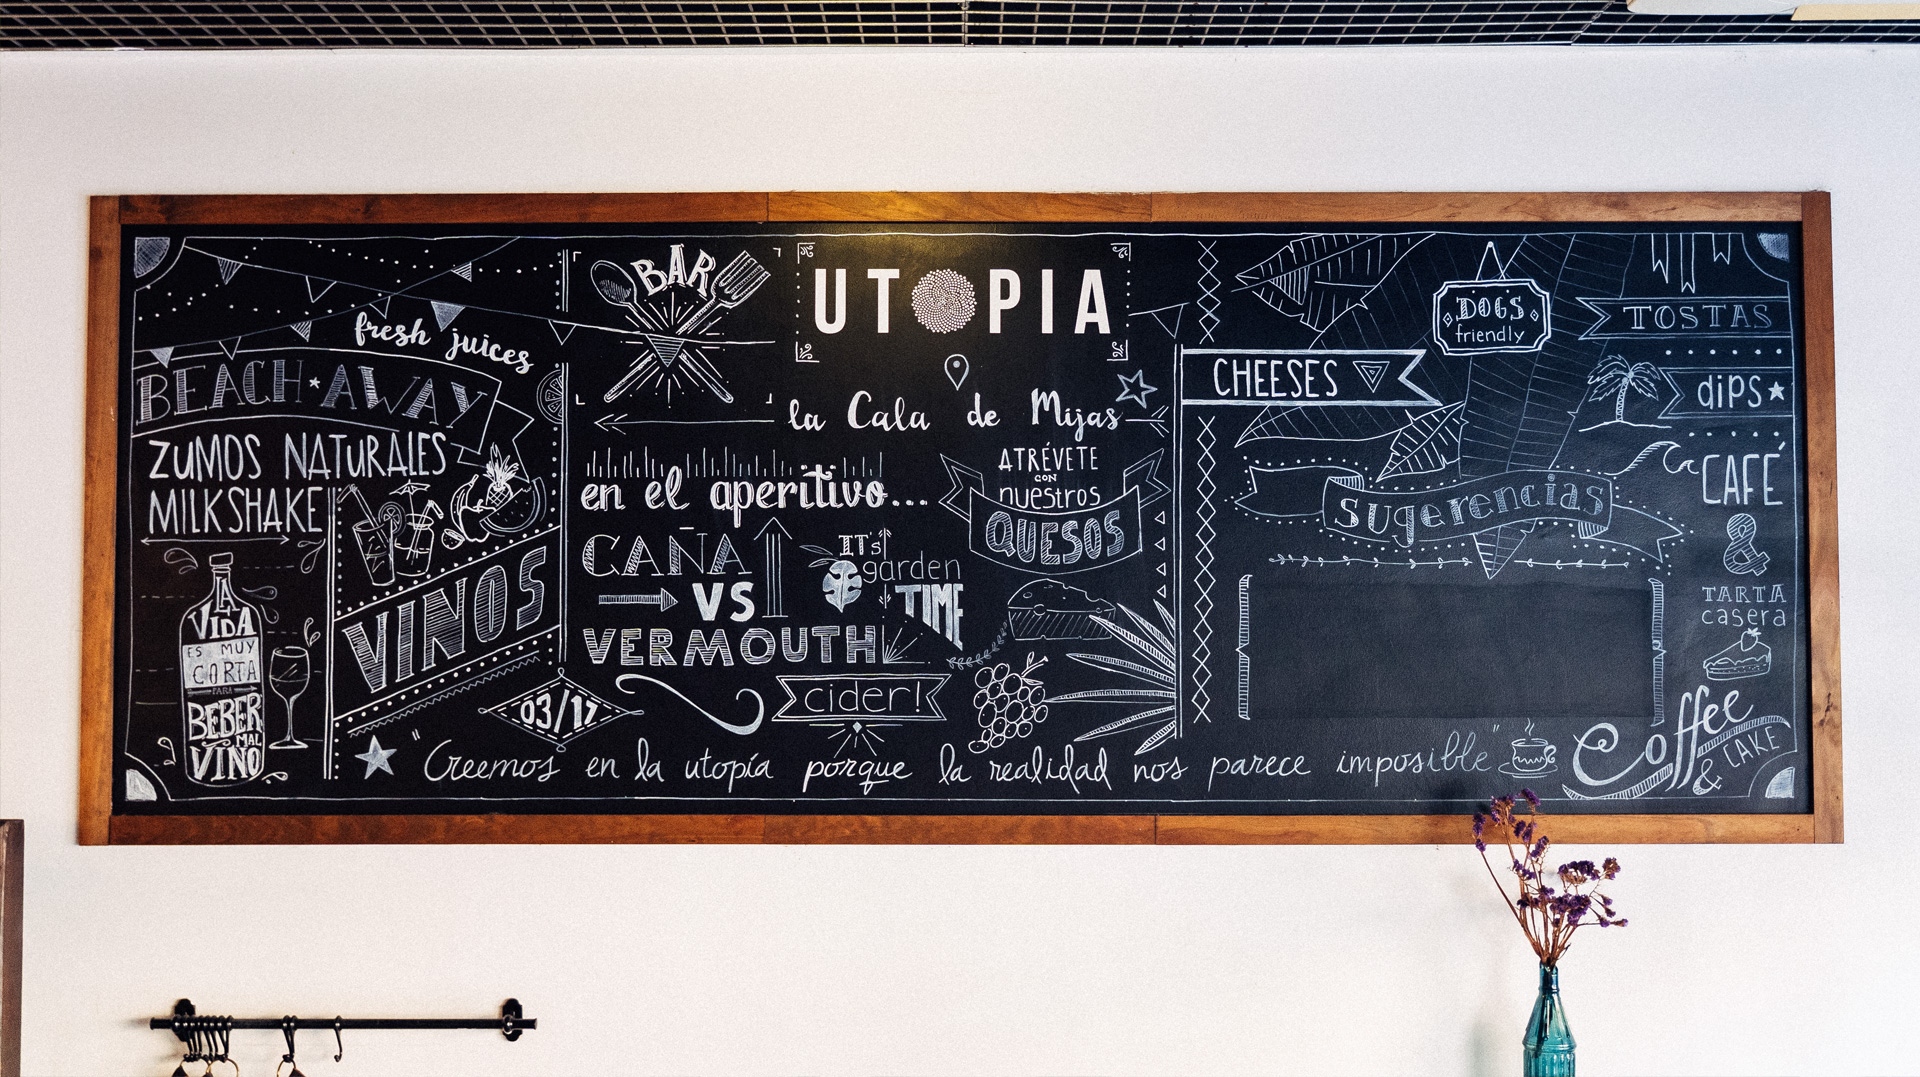 fresh juices
BEACH AWAY
ZUMOS NATURALES
MILKSHAKE
LA
VIDA
ES MUY
CORTA
PARA
BEBER
MAL
VINO
VINOS
03/17
BAR
UTOPIA
la Cala de Mijas
en el aperitivo...
CAÑA
VS
VERMOUTH
ITs
garden
TIME
cider!
ATRÉVETE
CON
nuestros
QUESOS
CHEESES
DOGS
friendly
TOSTAS
dips
sugerencias
CAFÉ
&
TARTA
casera
Coffee
& CAKE
"Creemos en la utopía porque la realidad nos parece imposible"